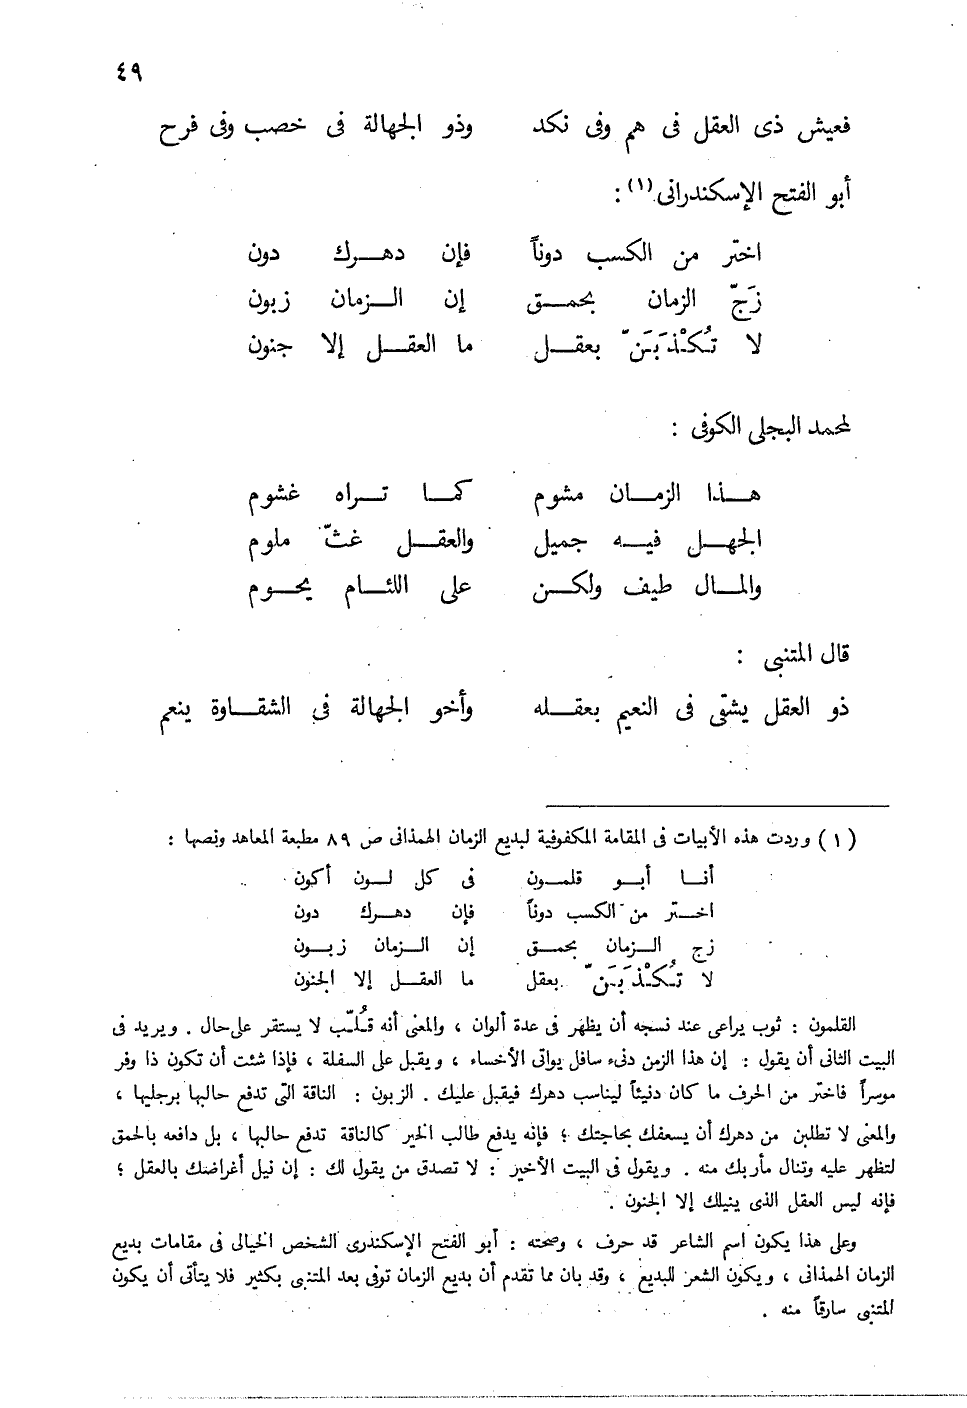 ٤٩
فعيش ذى العقل فى هم وفى نكد وذو الجهالة فى خصب وفى فرح
أبو الفتح الإسكندرانى(١) :
اختَر من الكسب دوناً فإن دهرك دون
زَجِّ الزمان بحمق إن الزمان زبون
لا تُكْذَبَنَّ بعقل ما العقل إلا جنون
لمحمد البجلى الكوفى :
هذا الزمان مشوم كما تراه غشوم
الجهل فيه جميل والعقل غثّ ملوم
والمال طيف ولكن على اللئام يحوم
قال المتنبى :
ذو العقل يشقى فى النعيم بعقله وأخو الجهالة فى الشقاوة ينعم
(١) وردت هذه الأبيات فى المقامة المكفوفية لبديع الزمان الهمذانى ص ٨٩ مطبعة المعاهد ونصها :
أنا أبو قلمون فى كل لون أكون
اختر من الكسب دوناً فإن دهرك دون
زج الزمان بحمق إن الزمان زبون
لا تُكْذَبَنَّ بعقل ما العقل إلا الجنون
القلمون : ثوب يراعى عند نسجه أن يظهر فى عدة ألوان ، والمعنى أنه قُلَّب لا يستقر على حال . ويريد فى
البيت الثانى أن يقول : إن هذا الزمن دنىء سافل يواتى الأخساء ، ويقبل على السفلة ، فإذا شئت أن تكون ذا وفر
موسراً فاختر من الحرف ما كان دنيئاً ليناسب دهرك فيقبل عليك . الزبون : الناقة التى تدفع حالبها برجليها ،
والمعنى لا تطلبن من دهرك أن يسعفك بحاجتك ؛ فإنه يدفع طالب الخير كالناقة تدفع حالبها ، بل دافعه بالحمق
لتظهر عليه وتنال مأربك منه . ويقول فى البيت الأخير : لا تصدق من يقول لك : إن نيل أغراضك بالعقل ؛
فإنه ليس العقل الذى ينيلك إلا الجنون .
وعلى هذا يكون اسم الشاعر قد حرف ، وصحته : أبو الفتح الإسكندرى الشخص الخيالى فى مقامات بديع
الزمان الهمذانى ، ويكون الشعر للبديع ، وقد بان مما تقدم أن بديع الزمان توفى بعد المتنبى بكثير فلا يتأتى أن يكون
المتنبى سارقاً منه .